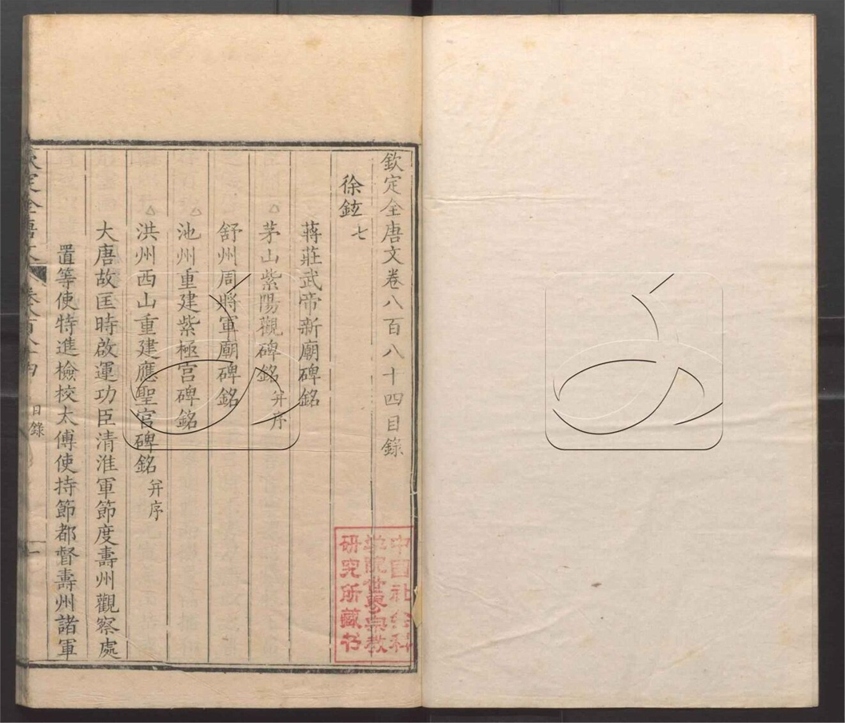 欽定全唐文卷八百八十四目錄
徐鉉七
蔣莊武帝新廟碑銘
茅山紫陽觀碑銘并序
舒州周將軍廟碑銘
池州重建紫極宮碑銘
洪州西山重建應聖宮碑銘并序
大唐故匡時啟運功臣清淮軍節度壽州觀察處
置等使特進檢校太傅使持節都督壽州諸軍
欽定全唐文 卷八百八十四 目錄 一
中国社会科
学院世界宗教
研究所藏书